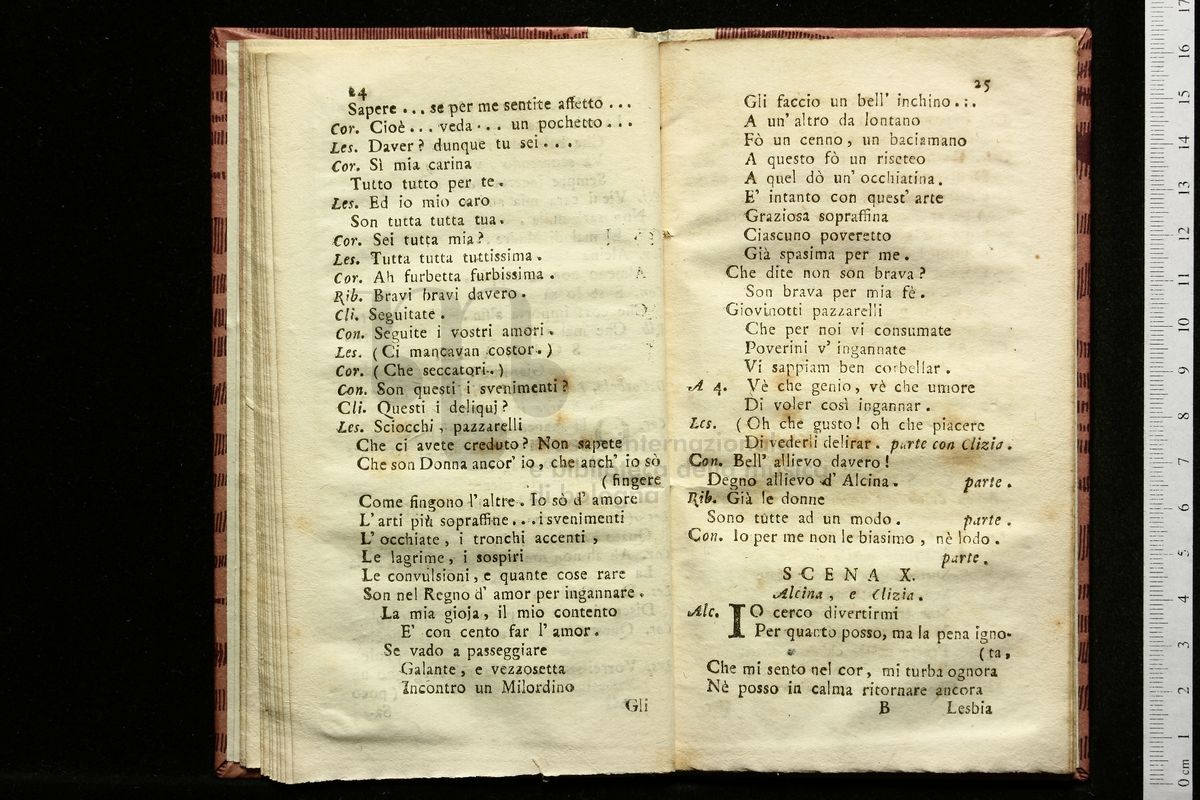 24
Sapere ... se per me sentite affetto ...
Cor. Cioè ... veda ... un pochetto ...
Les. Daver? dunque tu sei ...
Cor. Sì mia carina
Tutto tutto per te.
Les. Ed io mio caro
Son tutta tutta tua.
Cor. Sei tutta mia?
Les. Tutta tutta tuttissima.
Cor. Ah furbetta furbissima.
Rib. Bravi bravi davero.
Cli. Seguitate.
Con. Seguite i vostri amori.
Les. (Ci mancavan costor.)
Cor. (Che seccatori.)
Con. Son questi i svenimenti?
Cli. Questi i deliquj?
Les. Sciocchi, pazzarelli
Che ci avete creduto? Non sapete
Che son Donna ancor' io, che anch' io sò
(fingere
Come fingono l' altre. Io sò d' amore
L' arti più sopraffine... i svenimenti
L' occhiate, i tronchi accenti,
Le lagrime, i sospiri
Le convulsioni, e quante cose rare
Son nel Regno d' amor per ingannare.
La mia gioja, il mio contento
E' con cento far l' amor.
Se vado a passeggiare
Galante, e vezzosetta
Incontro un Milordino
Gli
25
Gli faccio un bell' inchino...
A un' altro da lontano
Fò un cenno, un baciamano
A questo fò un riseteo
A quel dò un' occhiatina.
E' intanto con quest' arte
Graziosa sopraffina
Ciascuno poveretto
Già spasima per me.
Che dite non son brava?
Son brava per mia fè.
Giovinotti pazzarelli
Che per noi vi consumate
Poverini v' ingannate
Vi sappiam ben corbellar.
A 4. Vè che genio, vè che umore
Di voler così ingannar.
Les. (Oh che gusto! oh che piacere
Di vederli delirar. parte con Clizia.
Con. Bell' allievo davero!
Degno allievo d' Alcina. parte.
Rib. Già le donne
Sono tutte ad un modo. parte.
Con. Io per me non le biasimo, nè lodo.
parte.
SCENA X.
Alcina, e Clizia.
Alc. IO cerco divertirmi
Per quanto posso, ma la pena igno-
(ta,
Che mi sento nel cor, mi turba ognora
Nè posso in calma ritornare ancora
B Lesbia